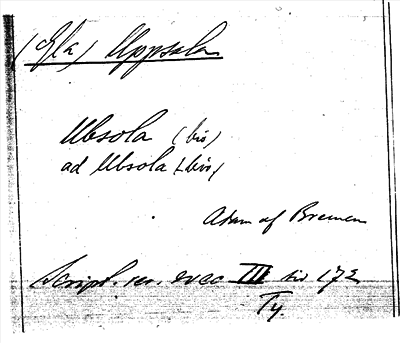 (Gla) Uppsala
Ubsola (bis)
ad Ubsola (bis)
Adam af Bremen
Script. rer. svec III sid 172
Ty.